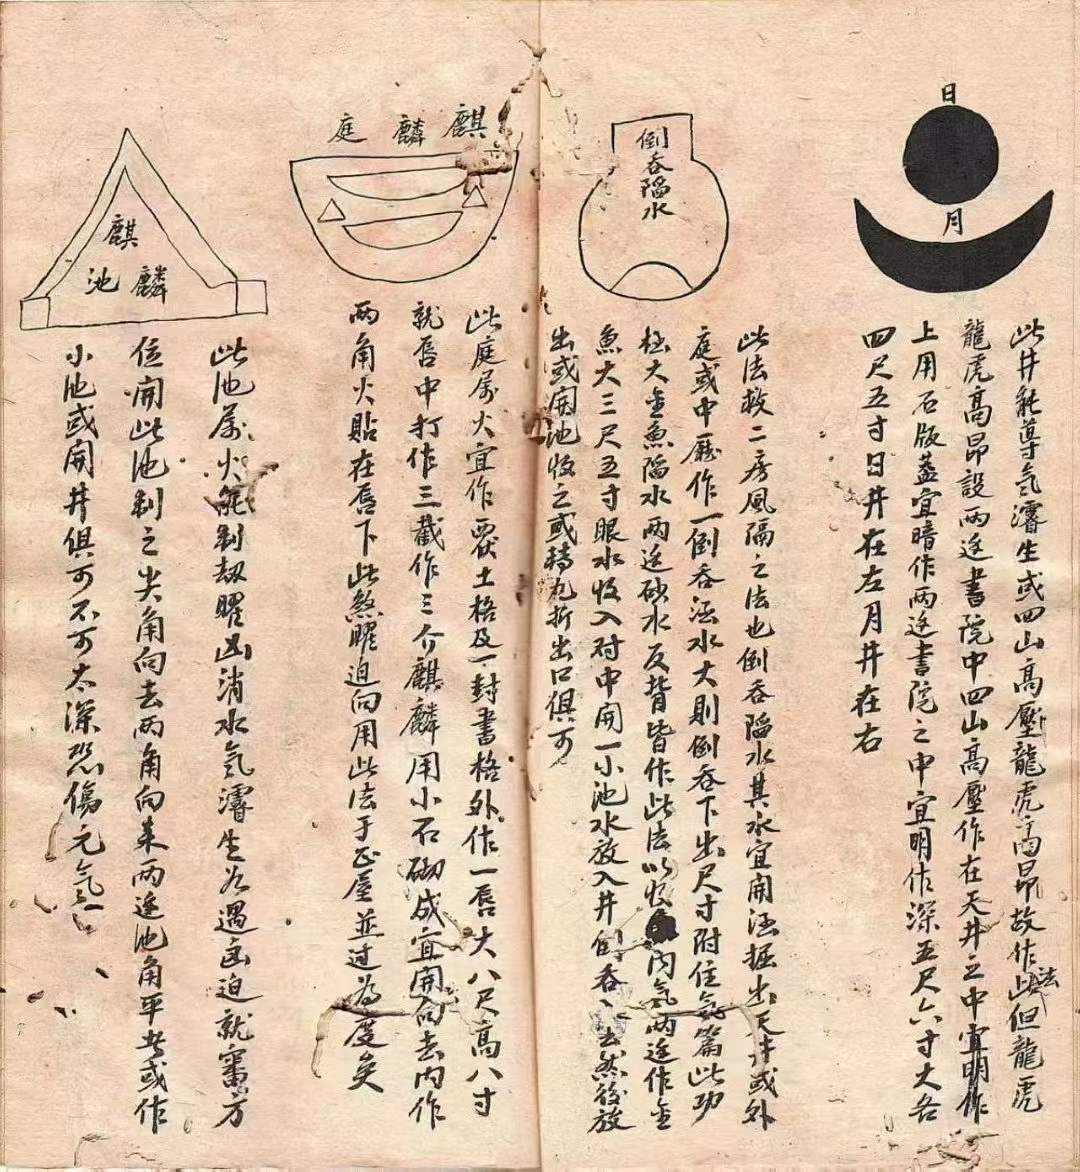 日
月
此井能導气濬生或四山高壓龍虎高昂故作此法但龍虎
龍虎高昂設兩边書院中四山高壓作在天井之中宜明作
上用石版蓋宜暗作兩边書院之中宜明作深五尺六寸大各
四尺五寸日井在左月井在右
倒吞陷水
此法救二房風隔之法也倒吞陷水其水宜開湮掘出天井或外
庭或中廳作一倒吞湮水大則倒吞下出尺寸附住氣篇此功
極大金魚陷水兩边砂水反背皆作此法以收內气兩边作金
魚大三尺五寸眼水收入对中開一小池水放入井倒吞去然後放
出或開池收之或轉九折出口俱可
麒麟庭
此庭屬火宜作覆土格及一封書格外作一唇大八尺高八寸
就唇中打作三截作三介麒麟用小石砌成宜開向去內作
兩角火貼在唇下此煞曜迫向用此法于正屋並过為度矣
麒麟池
此池屬火能制刼曜凶消水气濬生若遇凶迫就審方
位開此池制之尖角向去兩角向来兩边池角平安或作
小池或開井俱可不可太深恐傷元氣